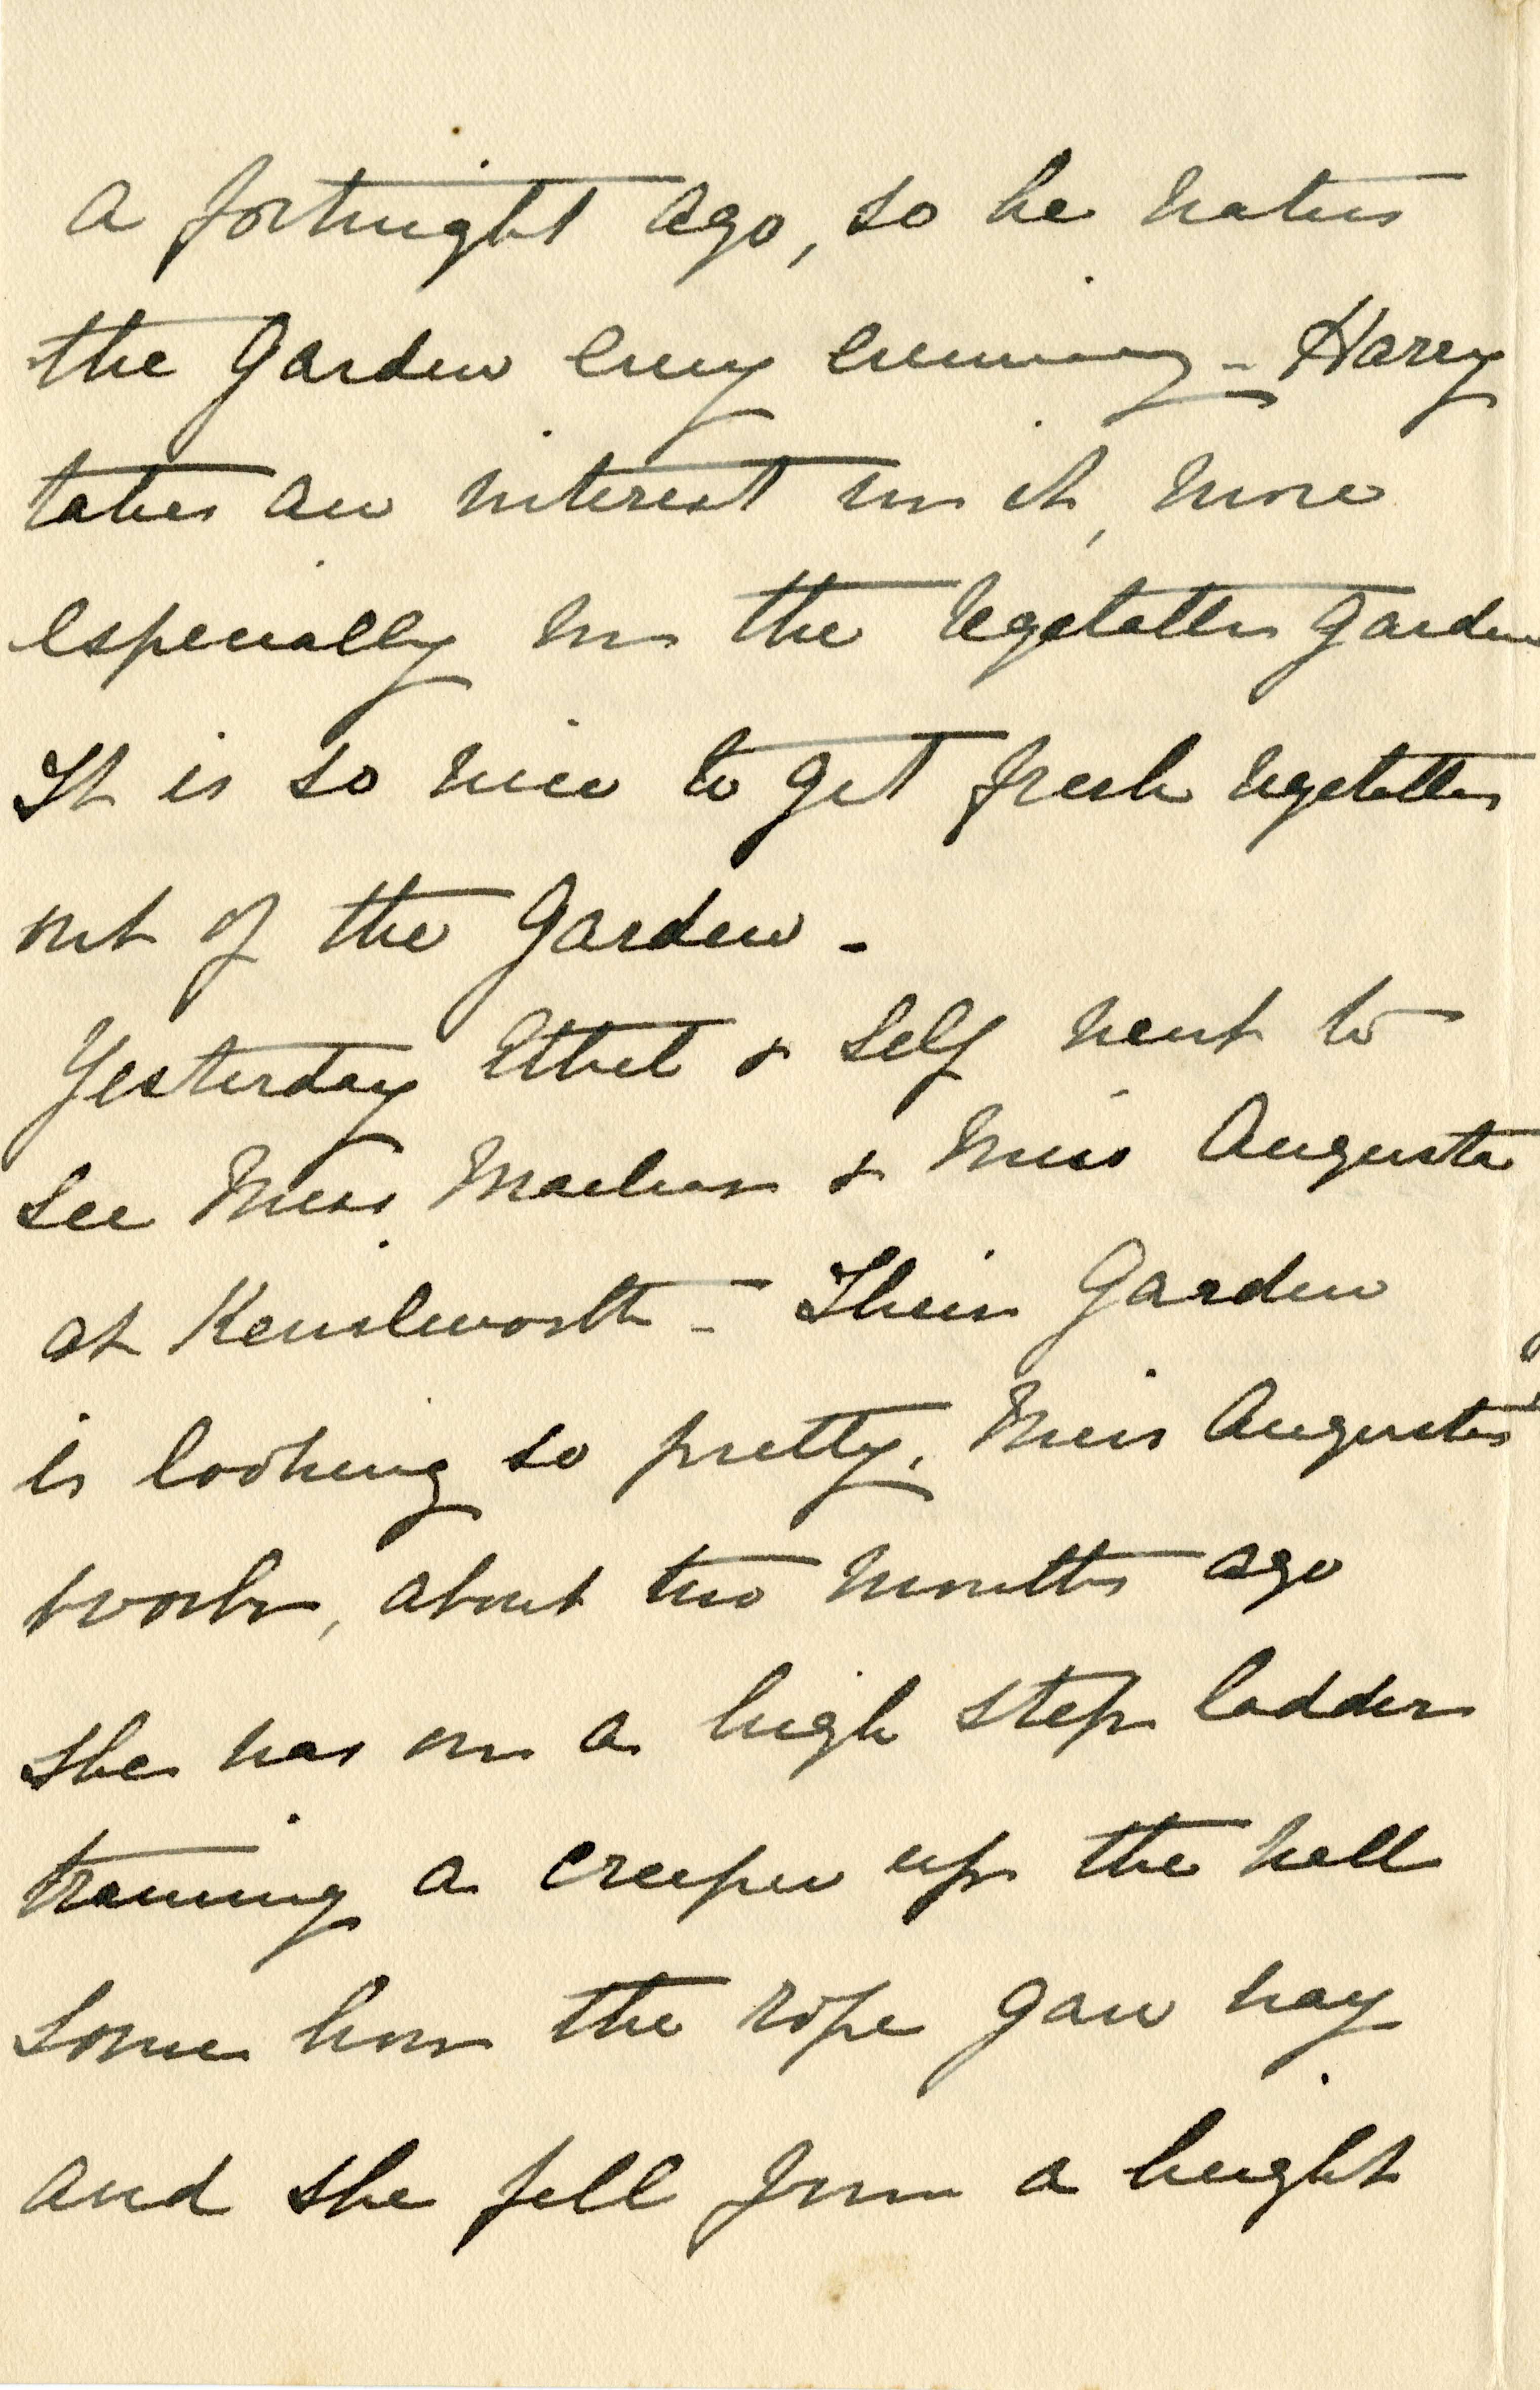 a fortnight ago, so he waters
the Garden every evening - Harry
takes an interest in it, more
especially in the vegetable garden
It is so nice to get fresh vegetables
out of the Garden -
Yesterday Ethel & Self went to
see Miss & Miss Augusta
at Kenilworth - Their Garden
is looking so pretty. Miss Augusta
works, about two months ago
she was on a high step ladder
training a creeper up the wall
some how the rope gave way
and she fell from a height